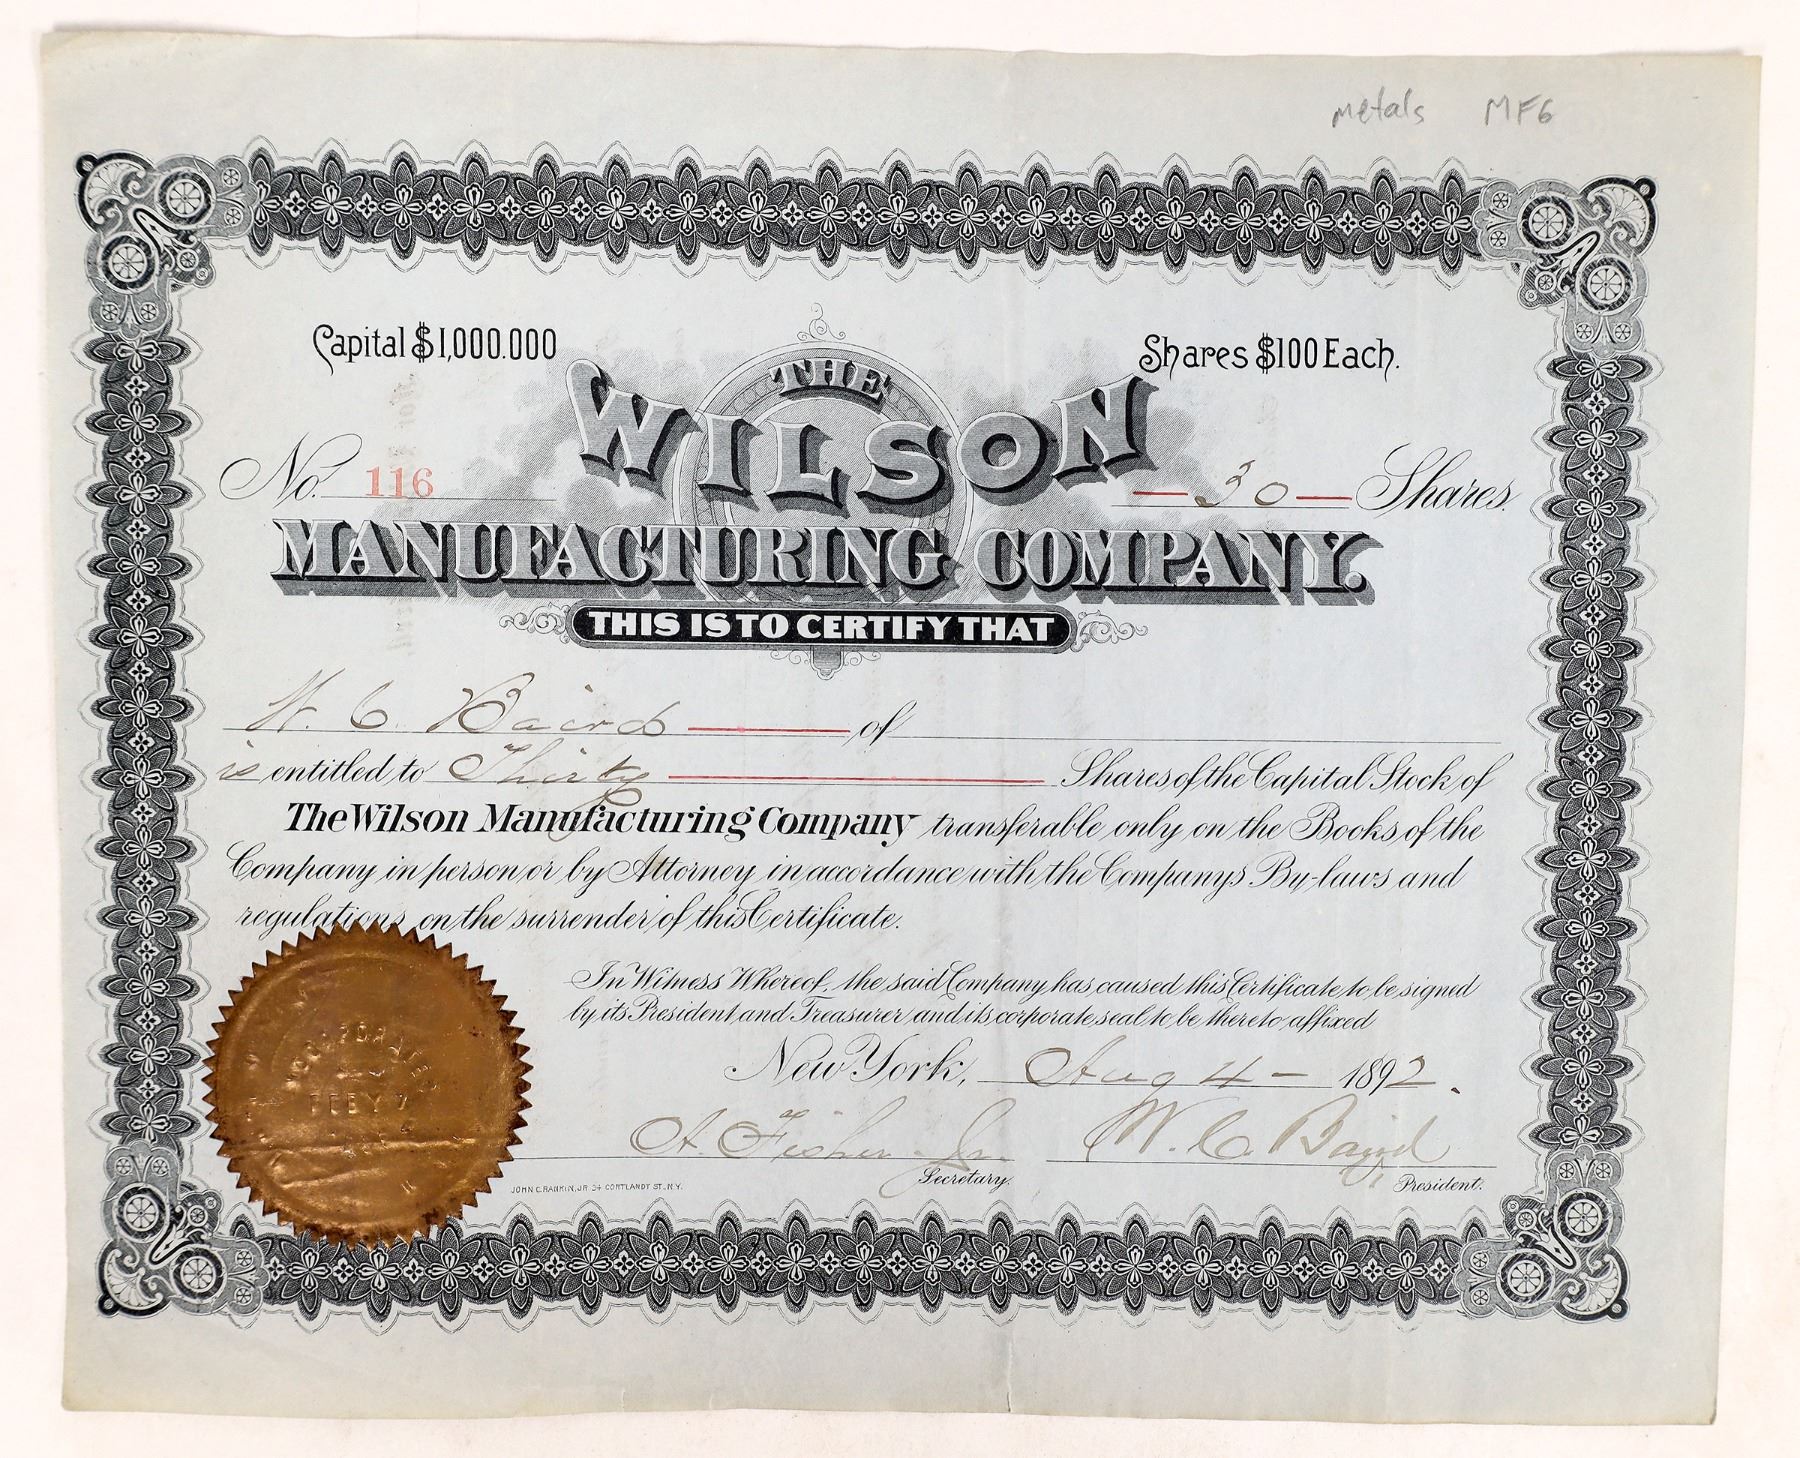 metals MF6
Capital $1,000.000
Shares $100 Each.
THE
WILSON
No. 116
30 Shares.
MANUFACTURING COMPANY.
THIS IS TO CERTIFY THAT
W. C. Baird of
is entitled to Thirty Shares of the Capital Stock of
The Wilson Manufacturing Company transferable only on the Books of the
Company in person or by Attorney in accordance with the Companys By-laws and
regulations on the surrender of this Certificate.
In Witness Whereof, the said Company has caused this Certificate to be signed
by its President and Treasurer and its corporate seal to be thereto affixed
New York, Aug 4 - 1892.
A. Fisher Jr. W. C. Baird
Secretary. President.
JOHN C. RANKIN, JR 34 CORTLANDT ST., N.Y.
INCORPORATED